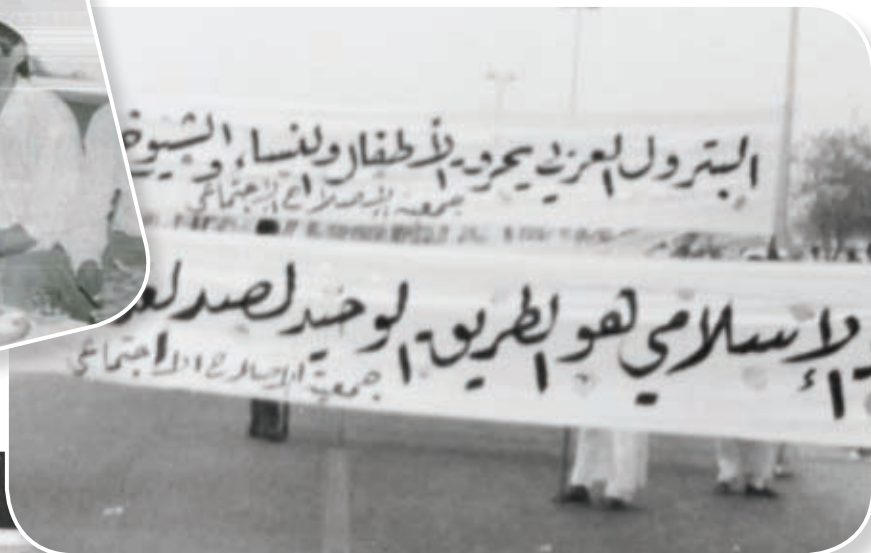 البترول العربي يحرق الأطفال والنساء والشيوخ
جمعية الإصلاح الاجتماعي
الإسلامي هو الطريق الوحيد لصد
جمعية الاصلاح الاجتماعي